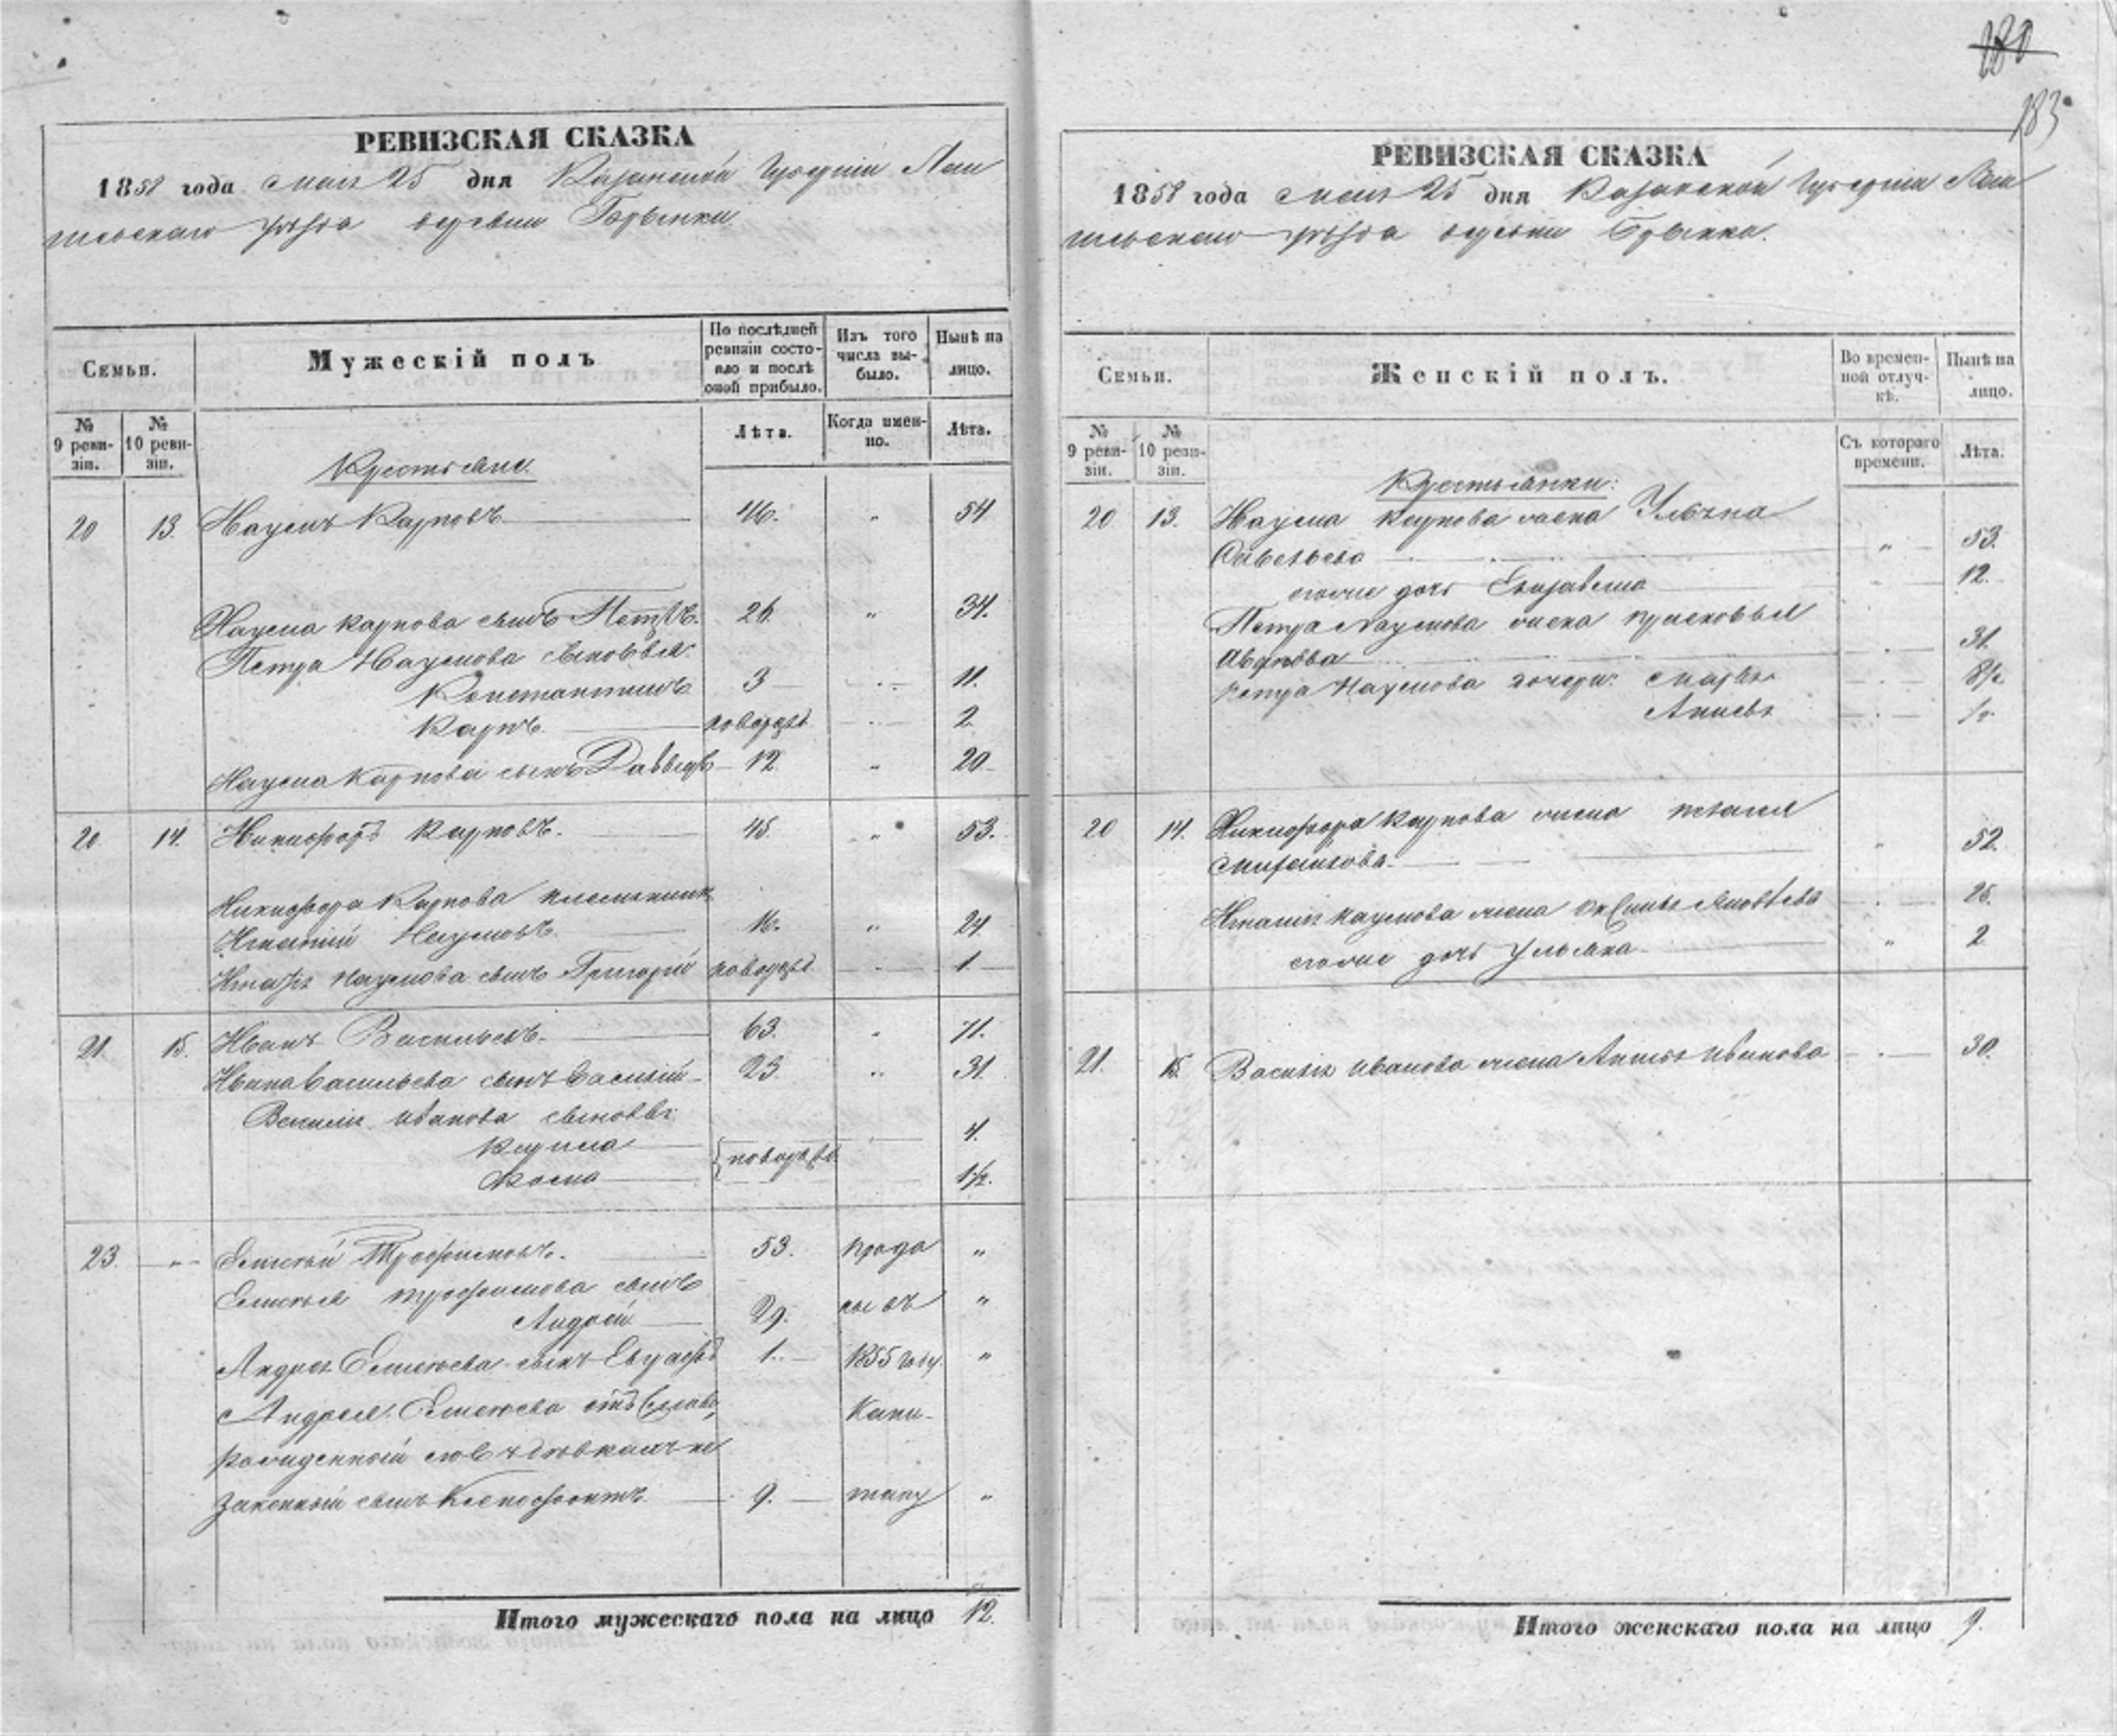 180
183
РЕВИЗСКАЯ СКАЗКА
1858 года мая 25 дня Казанской Губерніи Лаи
шевскаго уѣзда деревни Брынки
Семьи.
Мужескій полъ
По послѣдней ревизіи состо-
яло и послѣ оной прибыло.
Изъ того числа вы-
было.
Нынѣ на лицо.
№ 9 реви-
зіи.
№ 10 реви-
зіи.
Лѣта.
Когда имен-
но.
Лѣта.
Крестьяне
20 13. Наумъ Карповъ 46. " 54
Наума Карпова сынъ Петръ. 26. " 34.
Петра Наумова сыновья:
Константинъ 3 11.
Карпъ новорожд. 2.
Наума Карпова сынъ Давыдъ 12 " 20
20 14. Никифоръ Карповъ. 45. " 53.
Никифора Карпова племянник
Игнатій Наумовъ. 16. " 24
Игнатія Наумова сынъ Григорій новорожд. 1
21. 15. Иванъ Васильевъ. 63. " 71.
Ивана Васильева сынъ Василій 23. " 31.
Василія Иванова сыновья:
Кузьма 4.
новорожд.
Косма 1½.
23. " Елисѣй Трофимовъ. 53. прода "
Елисѣя Трофимова сынъ
Андрей 29. ны въ "
Андрея Елисѣева сынъ Евграфъ 1. 1855 году "
Андрея Елисѣева
Капи-
рожденный
законный сынъ Ксенофонтъ 9. тану "
Итого мужескаго пола на лицо 12.
РЕВИЗСКАЯ СКАЗКА
1858 года мая 25 дня Казанской Губерніи Лаи
шевскаго уѣзда деревни Брынки.
Семьи.
Женскій полъ.
Во времен-
ной отлуч-
кѣ.
Нынѣ на лицо.
№ 9 реви-
зіи.
№ 10 реви-
зіи.
Съ котораго времени.
Лѣта.
Крестьянки:
20 13. Наума Карпова жена Ульяна
Савельева " 53.
ихъ дочь Елизавета 12.
Петра Наумова жена Прасковья
31.
Петра Наумова дочери: Марья 8½
Анисья ½
20 14. Никифора Карпова жена
Михайлова. " 52.
Игнатія Наумова жена Яковлева 25.
дочь Ульяна " 2
21. 15. Василія Иванова жена Анисья Иванова 30.
Итого женскаго пола на лицо 9.